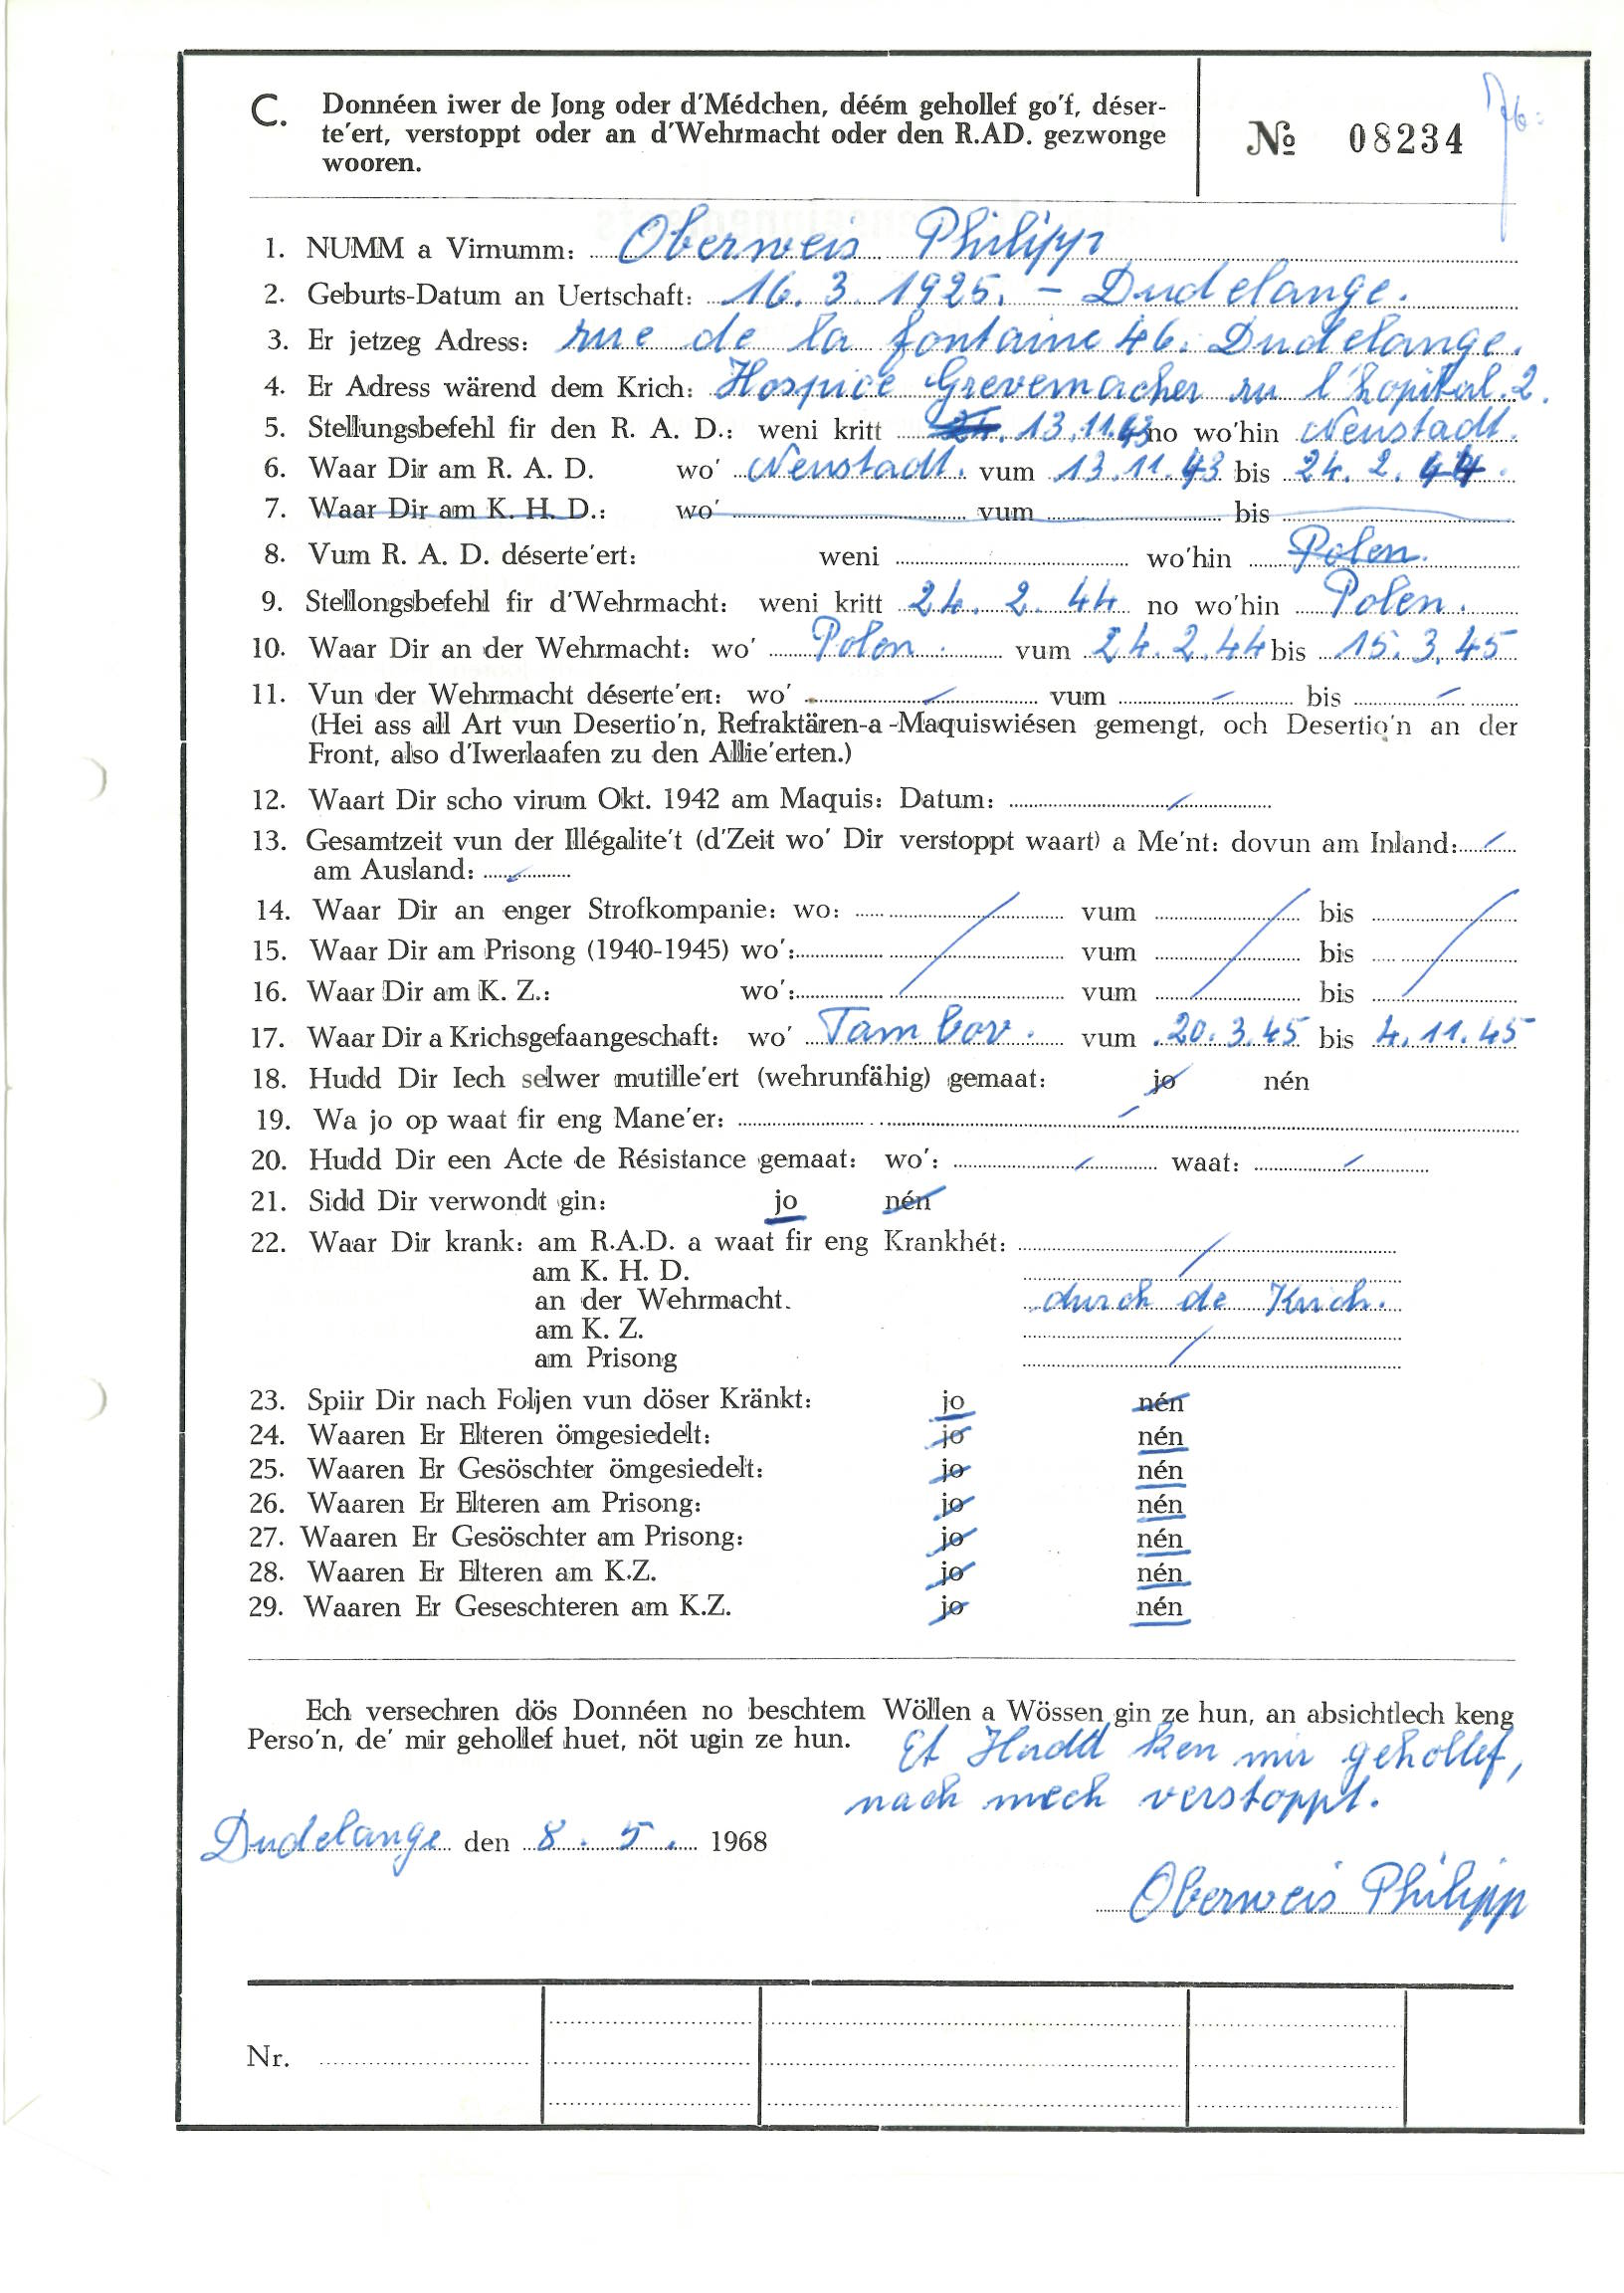 C. Donnéen iwer de Jong oder d'Médchen, déém gehollef go'f, déser-
te'ert, verstoppt oder an d'Wehrmacht oder den R.AD. gezwonge
wooren.
№ 08234
1. NUMM a Virnumm: Oberweis Philipp
2. Geburts-Datum an Uertschaft: 16. 3. 1925. - Dudelange.
3. Er jetzeg Adress: rue de la fontaine 46. Dudelange.
4. Er Adress wärend dem Krich: Hospice Grevemacher ru l'hopital. 2.
5. Stellungsbefehl fir den R. A. D.: weni kritt 13.11.43 no wo'hin Neustadt.
6. Waar Dir am R. A. D. wo' Neustadt. vum 13.11.43 bis 24. 2. 44.
7. Waar Dir am K. H. D.: wo' vum bis
8. Vum R. A. D. déserte'ert: weni wo'hin Polen.
9. Stellongsbefehl fir d'Wehrmacht: weni kritt 24. 2. 44 no wo'hin Polen.
10. Waar Dir an der Wehrmacht: wo' Polen. vum 24.2.44 bis 15. 3. 45
11. Vun der Wehrmacht déserte'ert: wo' vum bis
(Hei ass all Art vun Desertio'n, Refraktären-a-Maquiswiésen gemengt, och Desertio'n an der
Front, also d'Iwerlaafen zu den Allie'erten.)
12. Waart Dir scho virum Okt. 1942 am Maquis: Datum:
13. Gesamtzeit vun der Illégalite't (d'Zeit wo' Dir verstoppt waart) a Me'nt: dovun am Inland:
am Ausland:
14. Waar Dir an enger Strofkompanie: wo: vum bis
15. Waar Dir am Prisong (1940-1945) wo': vum bis
16. Waar Dir am K. Z.: wo': vum bis
17. Waar Dir a Krichsgefaangeschaft: wo' Tambov. vum 20. 3. 45 bis 4. 11. 45
18. Hudd Dir Iech selwer mutille'ert (wehrunfähig) gemaat: jo nén
19. Wa jo op waat fir eng Mane'er:
20. Hudd Dir een Acte de Résistance gemaat: wo': waat:
21. Sidd Dir verwondt gin: jo nén
22. Waar Dir krank: am R.A.D. a waat fir eng Krankhét:
am K. H. D.
an der Wehrmacht. durch de Krich.
am K. Z.
am Prisong
23. Spiir Dir nach Foljen vun döser Kränkt: jo nén
24. Waaren Er Elteren ömgesiedelt: jo nén
25. Waaren Er Gesöschter ömgesiedelt: jo nén
26. Waaren Er Elteren am Prisong: jo nén
27. Waaren Er Gesöschter am Prisong: jo nén
28. Waaren Er Elteren am K.Z. jo nén
29. Waaren Er Geseschteren am K.Z. jo nén
Ech versechren dös Donnéen no beschtem Wöllen a Wössen gin ze hun, an absichtlech keng
Perso'n, de' mir gehollef huet, nöt ugin ze hun. Et Hudd ken mir gehollef,
nach mech verstoppt.
Dudelange den 8. 5. 1968
Oberweis Philipp
Nr.